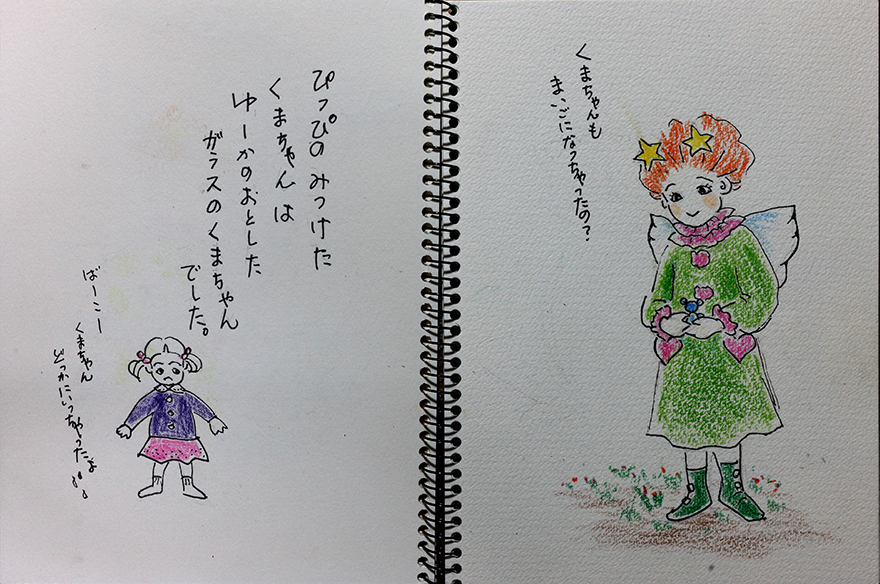 ぴっぴのみつけた
くまちゃんは
ゆーかのおとした
ガラスのくまちゃん
でした。
ばーこー
くまちゃん
どっかにいっちゃったよ
くまちゃんも
まいごになっちゃったの?